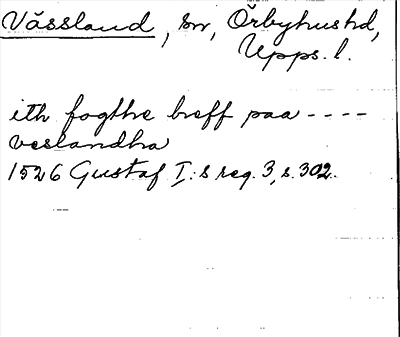 Vässland, sn, Örbyhus hd,
Upps. l.
ith fogthe breff paa ----
veslandha
1526 Gustaf I:s reg. 3, s. 302.